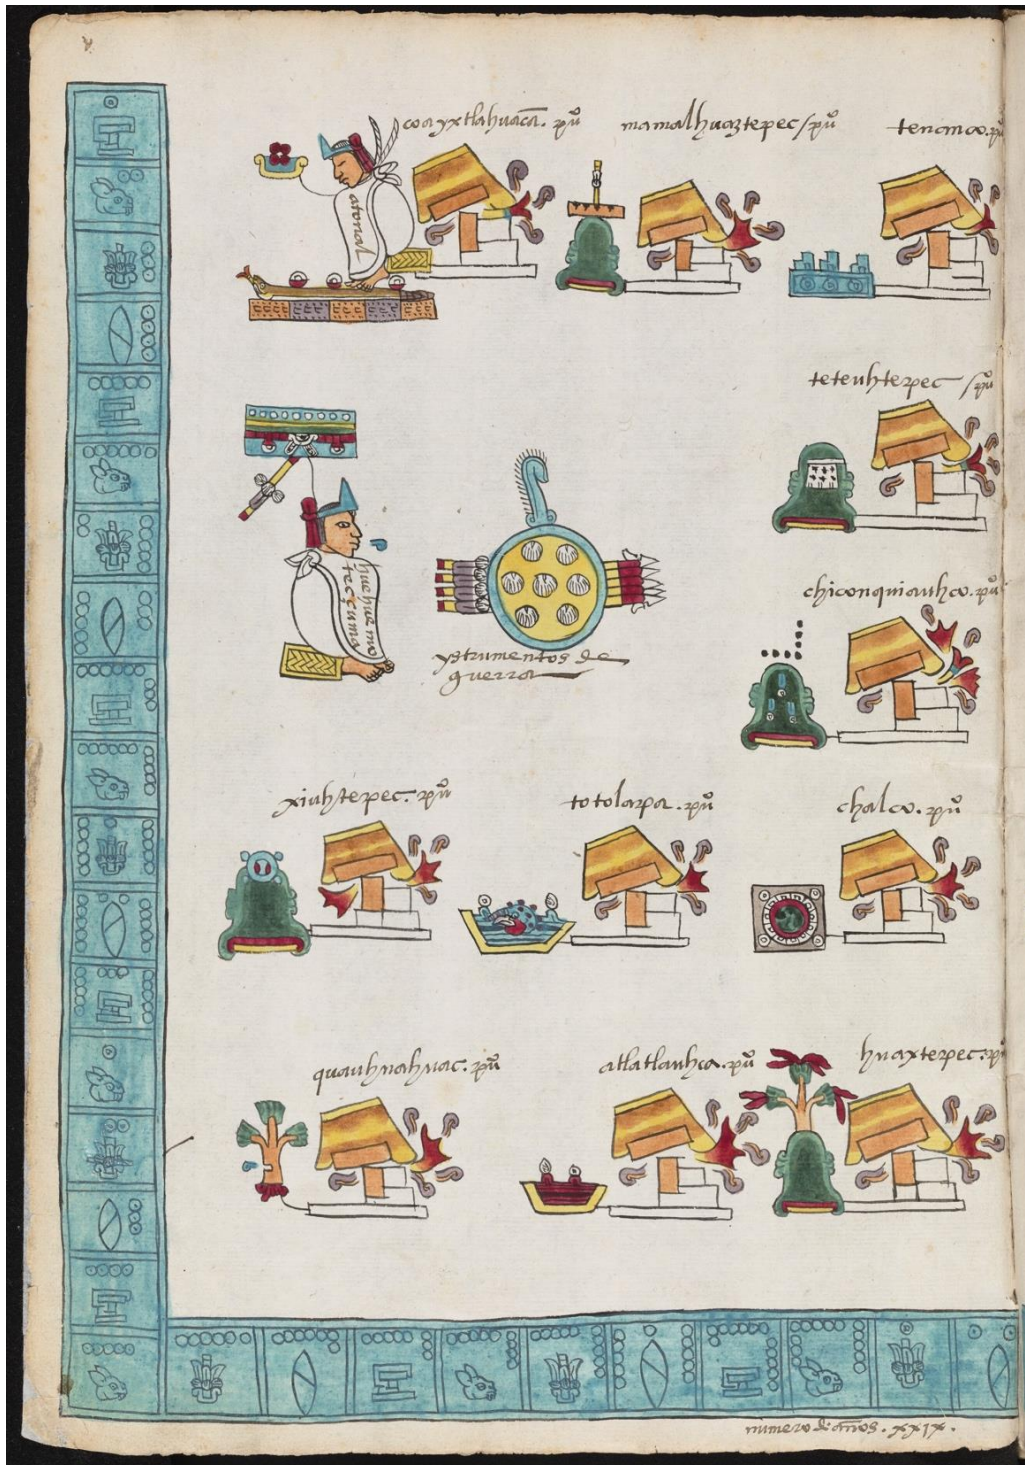 coayxtlahuacā. puº
mamalhuaztepec / puº
tenanco. pu
atonal
teteuhtepec / puº
chiconquiauhco. puº
huehue mo
tecçuma
ystrumentos de
guerra
xiuhtepec. puº
totolapa. puº
chalco. puº
quauhnahuac. puº
atlatlauhca. puº
huaxtepec. pu
numero de años. xxix.